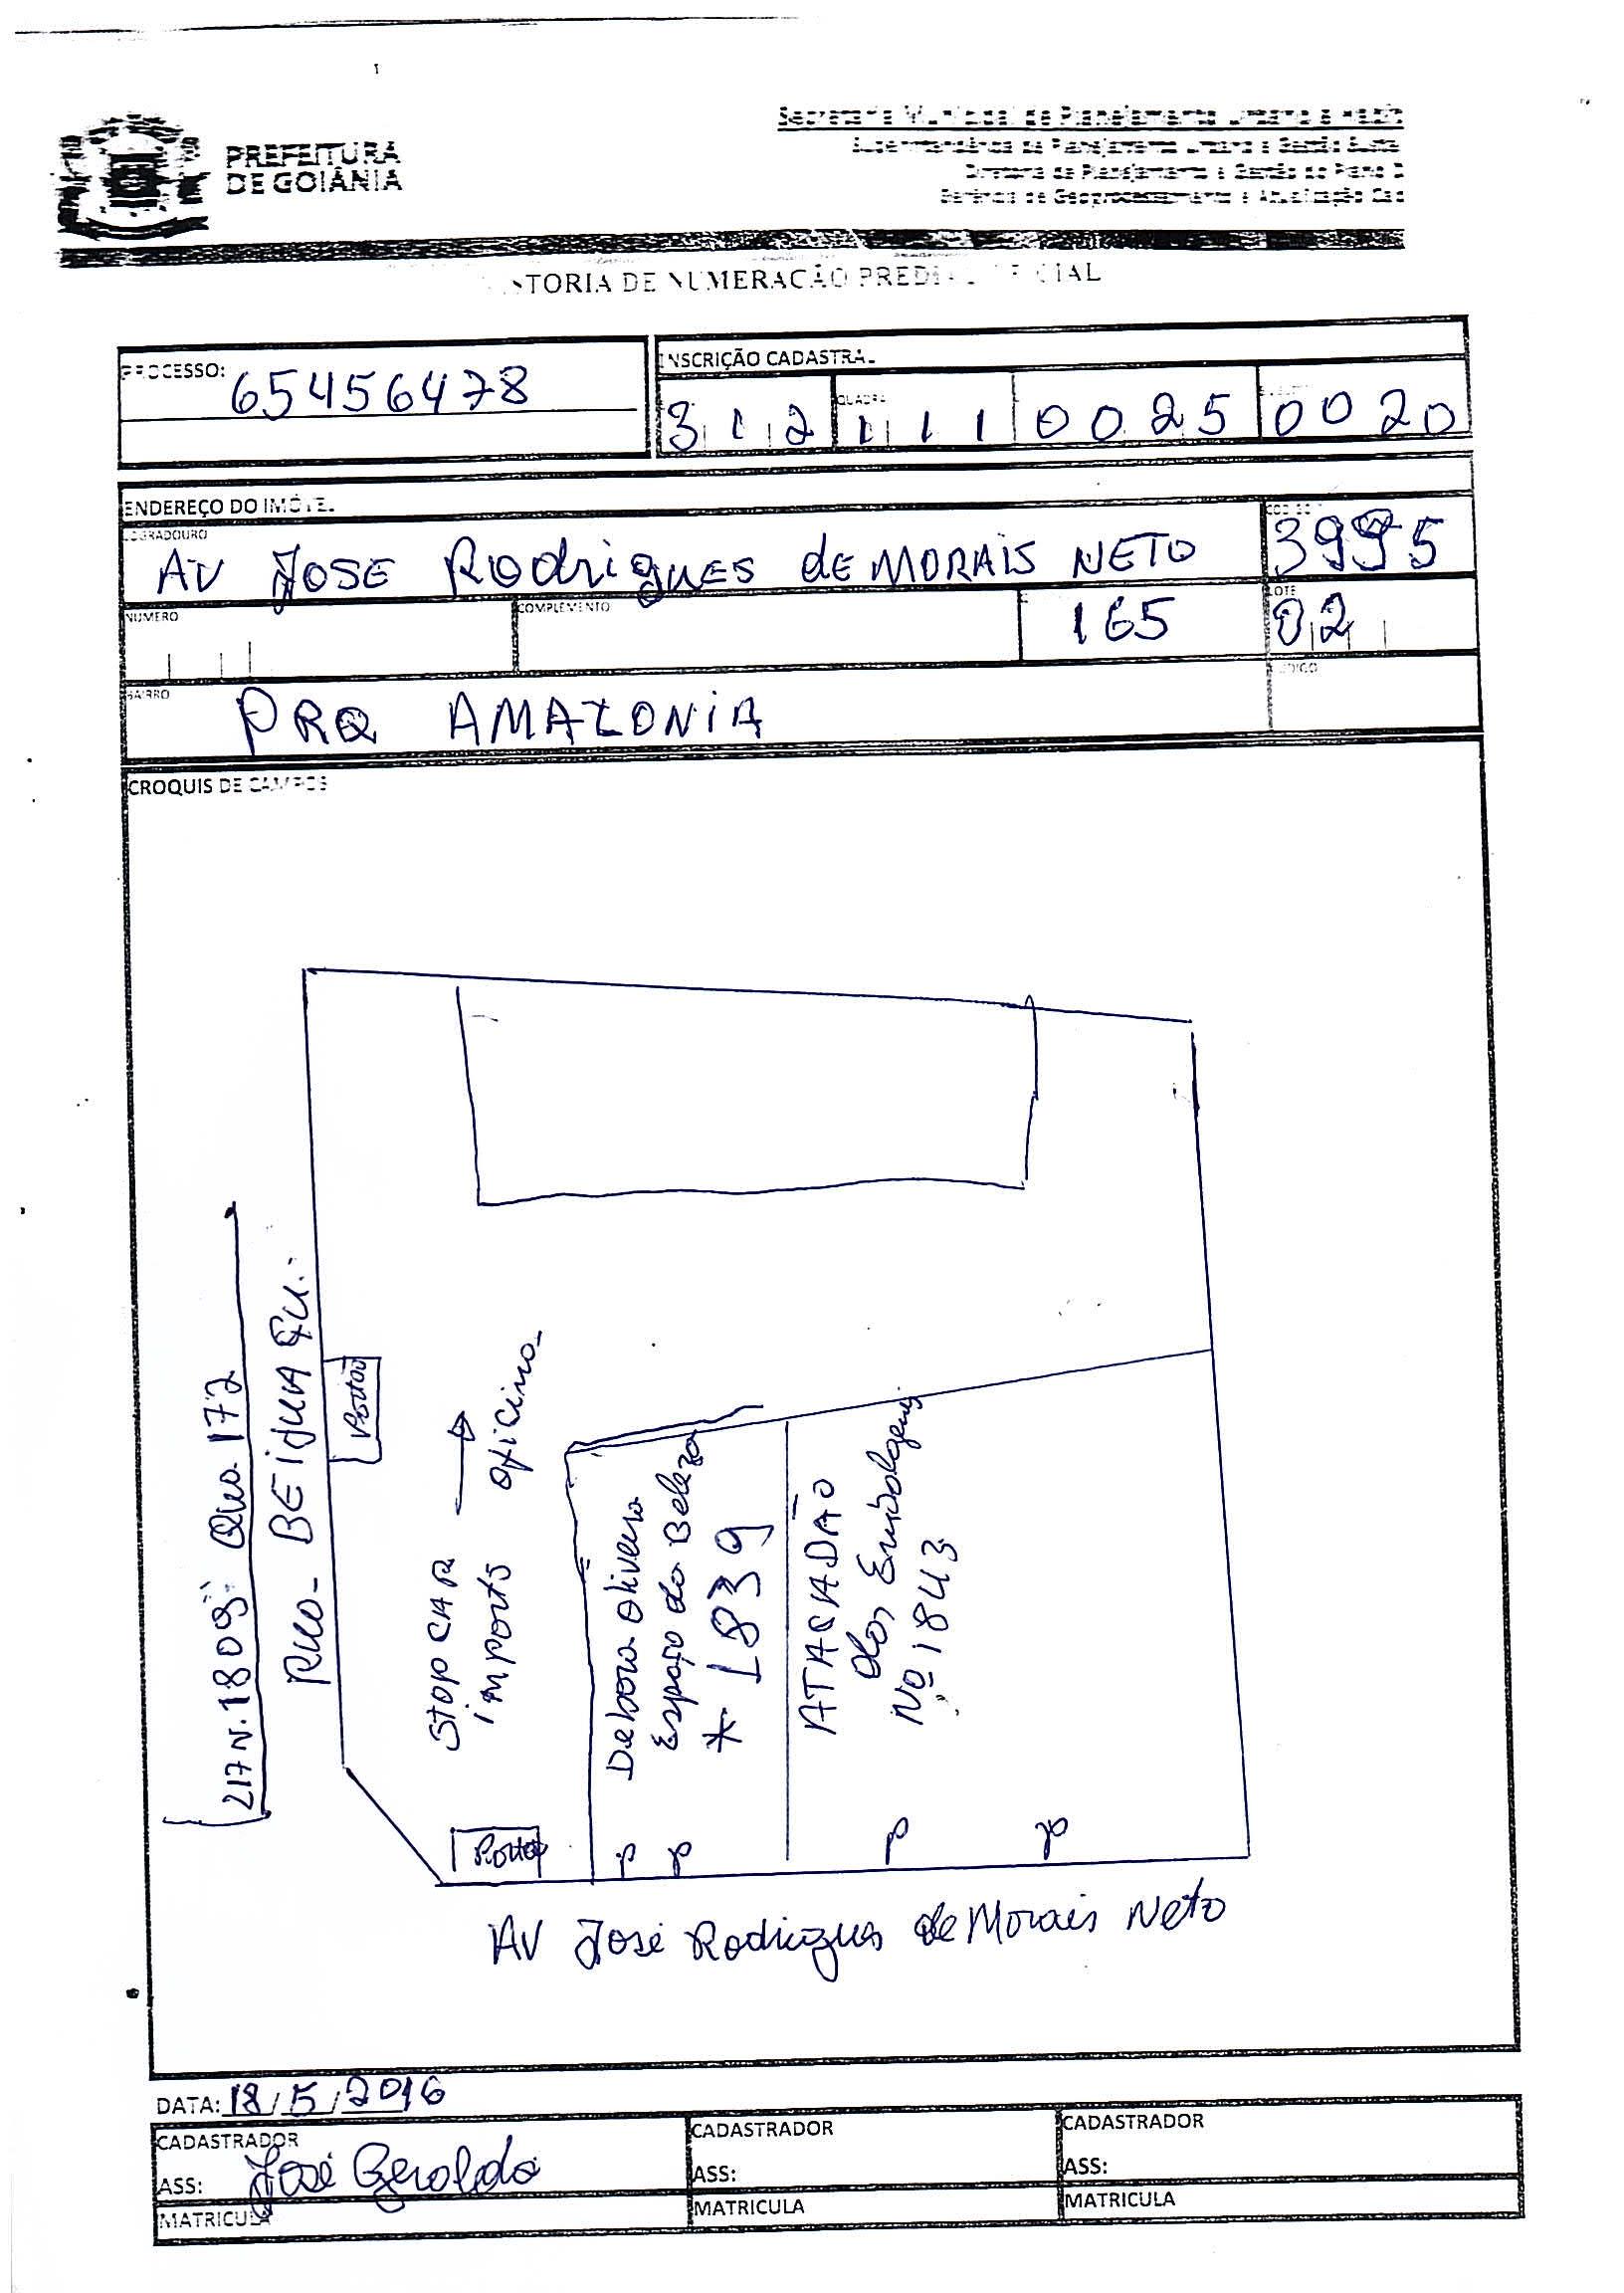 PREFEITURA
DE GOIÂNIA
Secretaria Municipal de Planejamento Urbano e
Superintendência de Planejamento Urbano e Gestão
Diretoria de Planejamento e Gestão do Plano D
Gerência de Geoprocessamento e Atualização Cad
STORIA DE NUMERAÇÃO PREDI CIAL
PROCESSO: 65456478
INSCRIÇÃO CADASTRAL
QUADRA
312 111 0025 0020
ENDEREÇO DO IMÓVEL
LOGRADOURO
AV JOSE RODRIGUES dE MORAIS NETO 3995
NÚMERO COMPLEMENTO 165 LOTE 02
BAIRRO PRQ AMAZONIA CÓDIGO
CROQUIS DE CAMPOS
217 N. 1809 Qua. 172
Rua BEIJUA QU.
Portão
STOP CAR
imports
oficina
Debora Oliveira
Espaço da Beleza
* 1839
ATACADÃO
das Embalagens
Nº 1843
Portão
P P P P
AV José Rodrigues de Morais Neto
DATA: 18/5/2016
CADASTRADOR CADASTRADOR CADASTRADOR
ASS: José Geraldo ASS: ASS:
MATRICULA MATRICULA MATRICULA